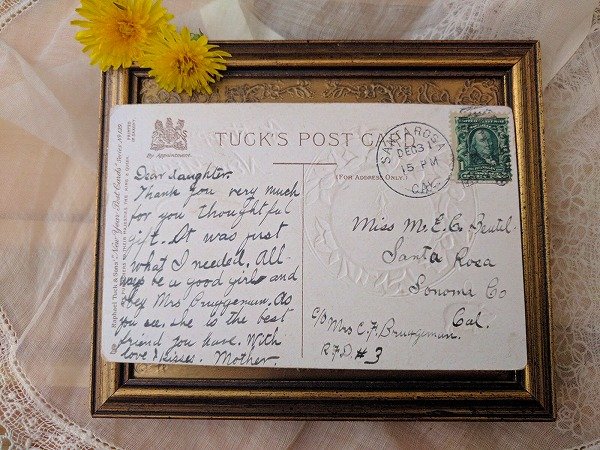 TUCK'S POST CARD
By Appointment.
(FOR ADDRESS ONLY.)
Raphael Tuck & Sons' "New Year" Post Cards
PRINTED
SANTA ROSA
DEC 31
5 PM
CAL.
Dear daughter.
Thank you very much
for you thoughtful
gift. It was just
what I needed. All-
ways be a good girl and
obey Mrs Bruggeman. As
you see, she is the best
friend you have. With
love & kisses. Mother.
Miss M. E. C. Beutel.
Santa Rosa
Sonoma Co
Cal.
c/o Mrs C. F. Bruggeman.
R.F.D. #3